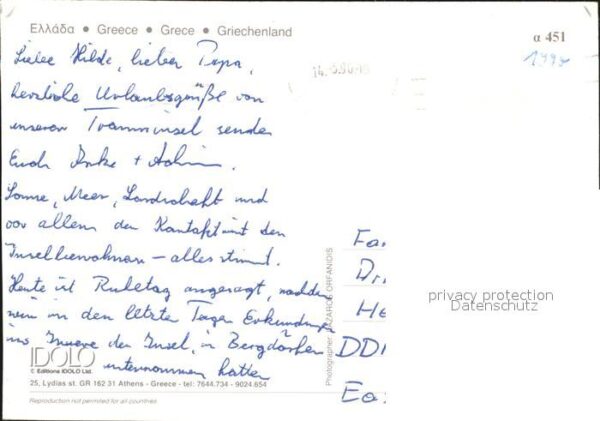 Ελλάδα • Greece • Grece • Griechenland
α 451
1990
Liebe Hilde, lieber Papa,
14.-5.90-1
herzliche Urlaubsgrüße von
unserer Trauminsel senden
Euch Anke + Achim.
Sonne, Meer, Landschaft und
vor allem der Kontakt mit den
Inselbewohnern – alles stimmt.
Heute ist Ruhetag angesagt, nachdem
wir in den letzten Tagen Erkundungen
ins Innere der Insel, in Bergdörfer
unternommen hatten
Fa
Dr
He
DDR
Ea
privacy protection
Datenschutz
Photographer: LAZAROS ORFANIDIS
IDOLO
© Editions IDOLO Ltd.
25, Lydias st. GR 162 31 Athens - Greece - tel: 7644.734 - 9024.654
Reproduction not permitted for all countries